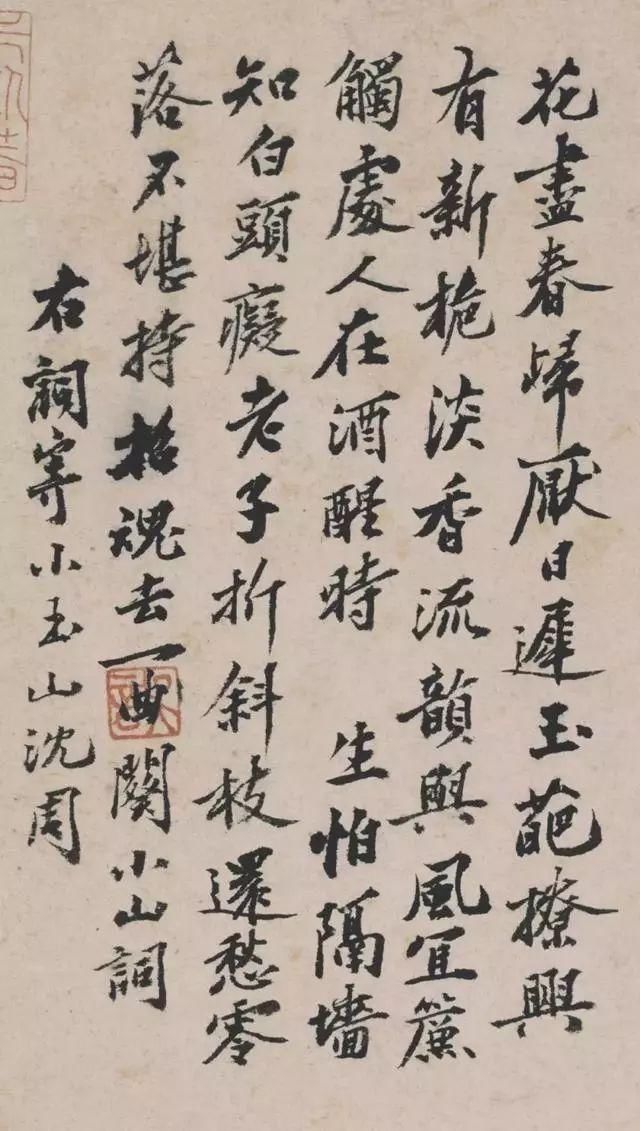 花盡春歸厭日遲玉葩撩興
有新梔淡香流韻與風宜簾
觸處人在酒醒時　生怕隔墻
知白頭癡老子折斜枝還愁零
落不堪持招魂去一曲關小山詞
右詞寄小玉山沈周